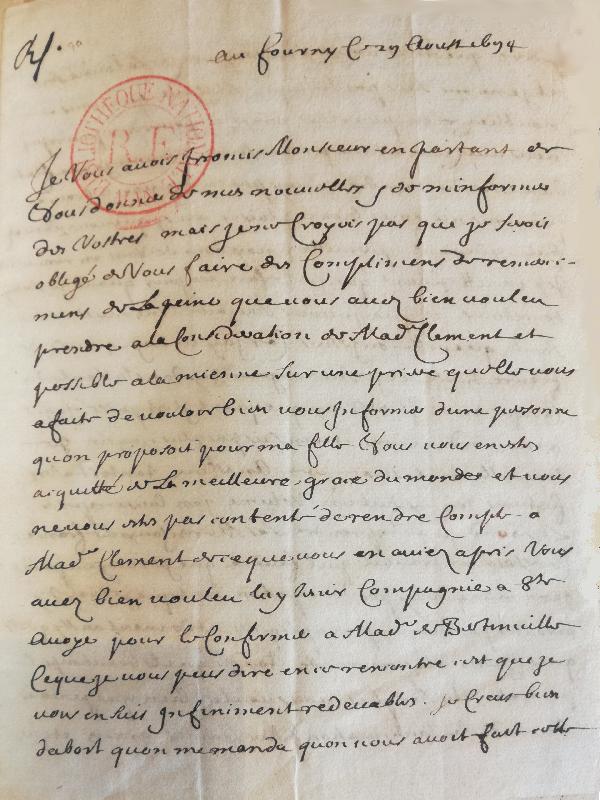 Rf.
au fourny Ce 29 Aoust 1694
BIBLIOTHEQUE NATIONALE
R.F.
Je Vous avois promis Monsieur en partant de
Vous donner de mes nouvelles & de minformer
des Vostres mais je ne Croyois pas que je serois
obligé de Vous faire des Complimens de remerci-
mens de La peine que vous avez bien voulu
prendre ala Consideration de Mad.e Clement et
possible ala mienne sur une priere quelle vous
a faite de vouloir bien vous Informer dune personne
quon proposoit pour ma fille Vous vous en estes
acquitté de La meilleure grace du monde et vous
ne vous estes pas contenté de rendre Compte a
Mad.e Clement de ce que vous en aviez apris Vous
avez bien voulu luy tenir Compagnie a Ste
Avoye pour le Confirmer a Mad.e de
Ce que je vous peus dire en ce rencontre c'est que je
vous en suis Infiniment redevable. Je Creus bien
dabort quon me manda quon vous avoit fait cette